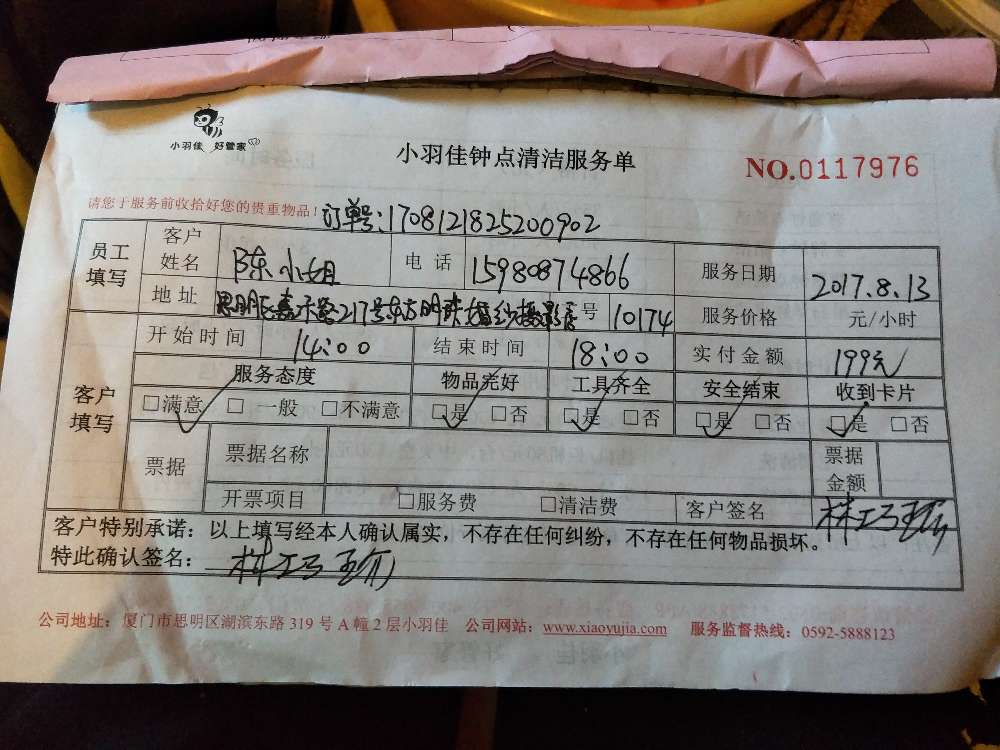 小羽佳 好管家
小羽佳钟点清洁服务单
NO.0117976
请您于服务前收拾好您的贵重物品!
订单号:170812182520902
员工填写 客户姓名 陈小姐 电话 15980874866 服务日期 2017.8.13
地址 思明区嘉禾路217号东方明珠婚纱摄影店 号 10174 服务价格 元/小时
开始时间 14:00 结束时间 18:00 实付金额 199元
客户填写 服务态度 物品完好 工具齐全 安全结束 收到卡片
□满意 □一般 □不满意 □是 □否 □是 □否 □是 □否 □是 □否
票据 票据名称 票据金额
开票项目 □服务费 □清洁费 客户签名
客户特别承诺:以上填写经本人确认属实,不存在任何纠纷,不存在任何物品损坏。
特此确认签名:
公司地址:厦门市思明区湖滨东路 319 号 A 幢 2 层小羽佳 公司网站:www.xiaoyujia.com 服务监督热线:0592-5888123